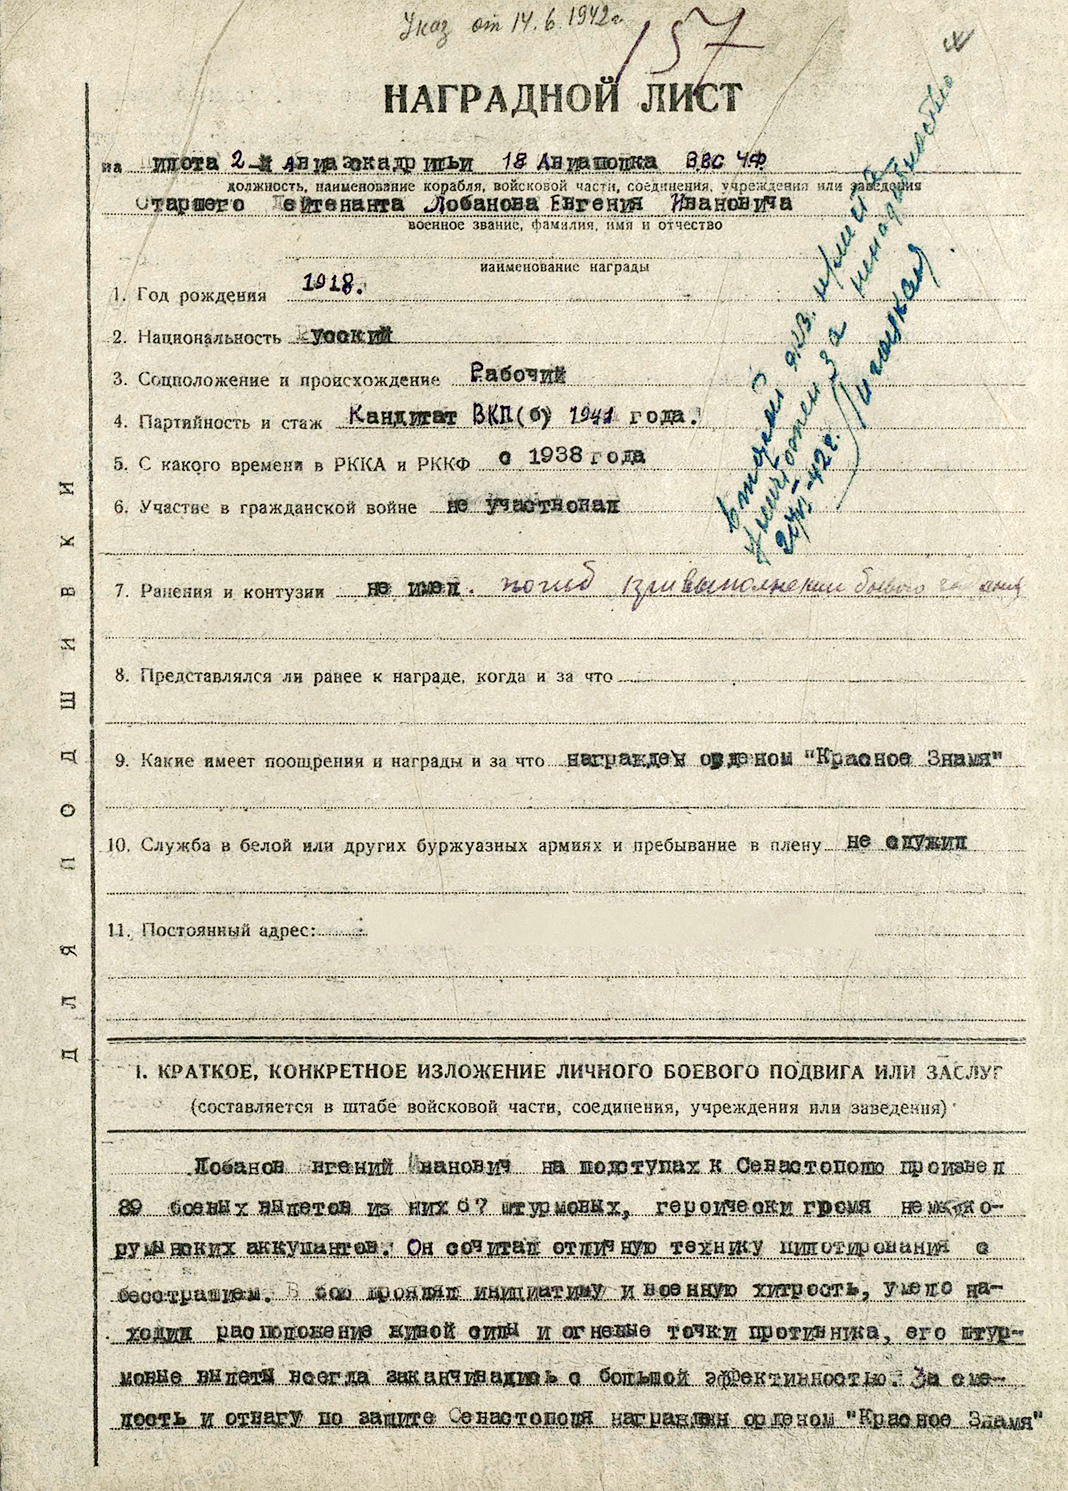 Указ от 14.6.1942г.
157
НАГРАДНОЙ ЛИСТ
на Пилота 2-й Авиаэскадрильи 18 Авиаполка ВВС ЧФ
должность, наименование корабля, войсковой части, соединения, учреждения или заведения
Старшего Лейтенанта Лобанова Евгения Ивановича
военное звание, фамилия, имя и отчество
наименование награды
1. Год рождения 1918.
2. Национальность Русский
3. Соцположение и происхождение Рабочий
4. Партийность и стаж Кандитат ВКП(б) 1941 года.
5. С какого времени в РККА и РККФ с 1938 года
6. Участие в гражданской войне не участвовал
7. Ранения и контузии не имел. погиб при выполнении боевого задания
8. Представлялся ли ранее к награде, когда и за что
9. Какие имеет поощрения и награды и за что награжден орденом "Красное Знамя"
10. Служба в белой или других буржуазных армиях и пребывание в плену не служил
11. Постоянный адрес:
Второй экз. листа
уничтожен за ненадобностью
ДЛЯ ПОДШИВКИ
I. КРАТКОЕ, КОНКРЕТНОЕ ИЗЛОЖЕНИЕ ЛИЧНОГО БОЕВОГО ПОДВИГА ИЛИ ЗАСЛУГ
(составляется в штабе войсковой части, соединения, учреждения или заведения)
Лобанов вгений Иванович на подступах к Севастополю произвел
89 боевых вылетов из них 67 штурмовых, героически громя немецко-
румынских аккупантов. Он сочитал отличную технику пилотирования с
бесстрашием. В бою проявлял инициативу и военную хитрость, умело на-
ходил расположение живой силы и огневые точки противника, его штур-
мовые вылеты всегда заканчивались с большой эффективностью. За сме-
лость и отвагу по защите Севастополя награжден орденом "Красное Знамя"